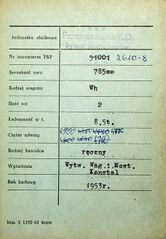 Jednostka służbowa
Nr inwentarza PKP 91001 2610-8
Szerokość toru 785mm
Rodzaj wagonu Wh
Ilość osi 2
Ładowność w t. 8,5t.
Ciężar własny
Rodzaj hamulca ręczny
Wytwórnia Wytw. Wag. i Most. Konstal
Rok budowy 1953r.